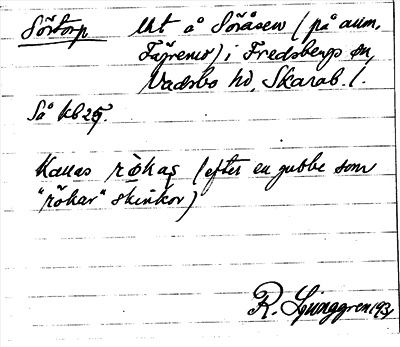 Sörtorp Lht å Söråsen (på aum.
Fägremo) i Fredsbergs sn,
Vadsbo hd, Skarab. l.
Så kb 25.
Kallas rökas (efter en gubbe som
"rökar" skinkor)
R. Ljunggren 193